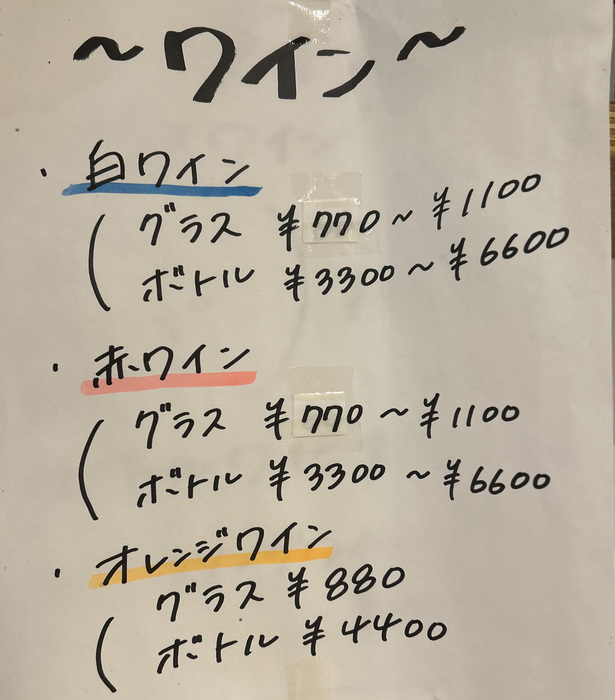 ~ワイン~
・白ワイン
( グラス ¥770~¥1100
ボトル ¥3300~¥6600
・赤ワイン
( グラス ¥770~¥1100
ボトル ¥3300~¥6600
・オレンジワイン
( グラス ¥880
ボトル ¥4400